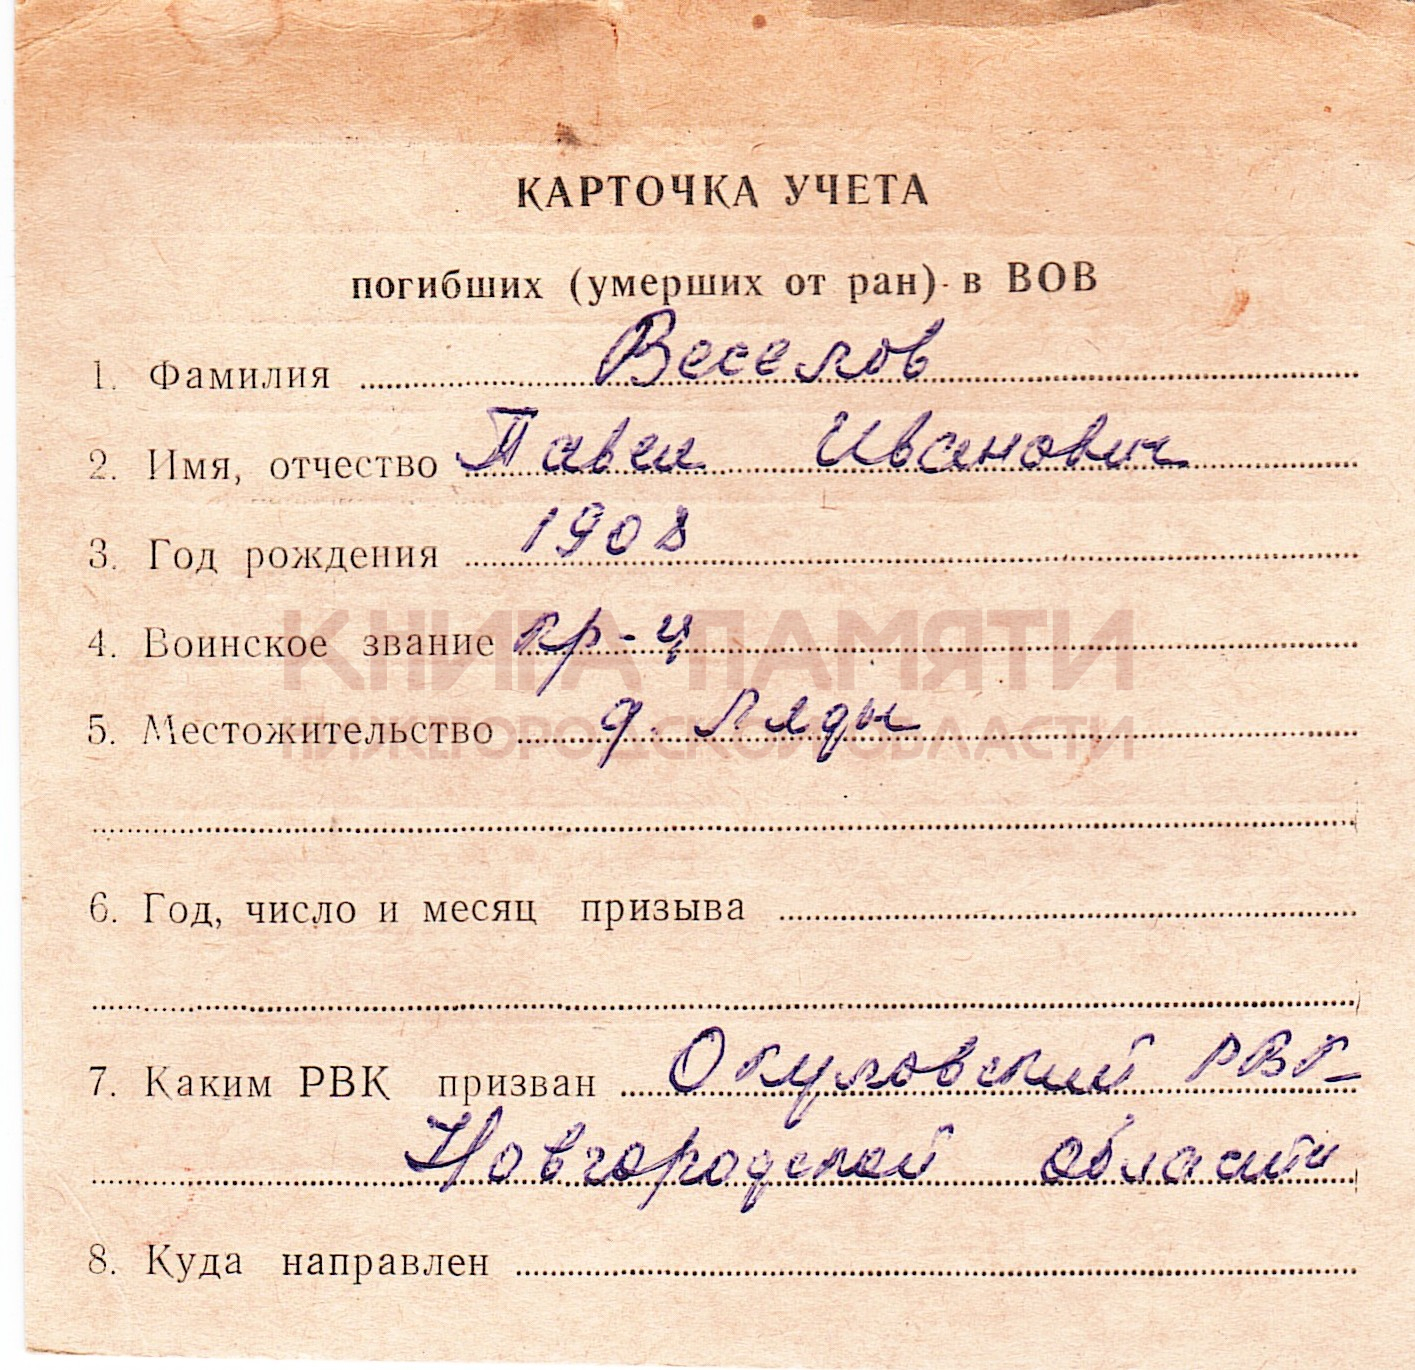 КАРТОЧКА УЧЕТА
погибших (умерших от ран) в ВОВ
1. Фамилия Веселов
2. Имя, отчество Павел Иванович
3. Год рождения 1908
4. Воинское звание кр-ц
КНИГА ПАМЯТИ
5. Местожительство д. Ляды
НИЖЕГОРОДСКОЙ ОБЛАСТИ
6. Год, число и месяц призыва
7. Каким РВК призван Окуловский РВК
Новгородской области
8. Куда направлен